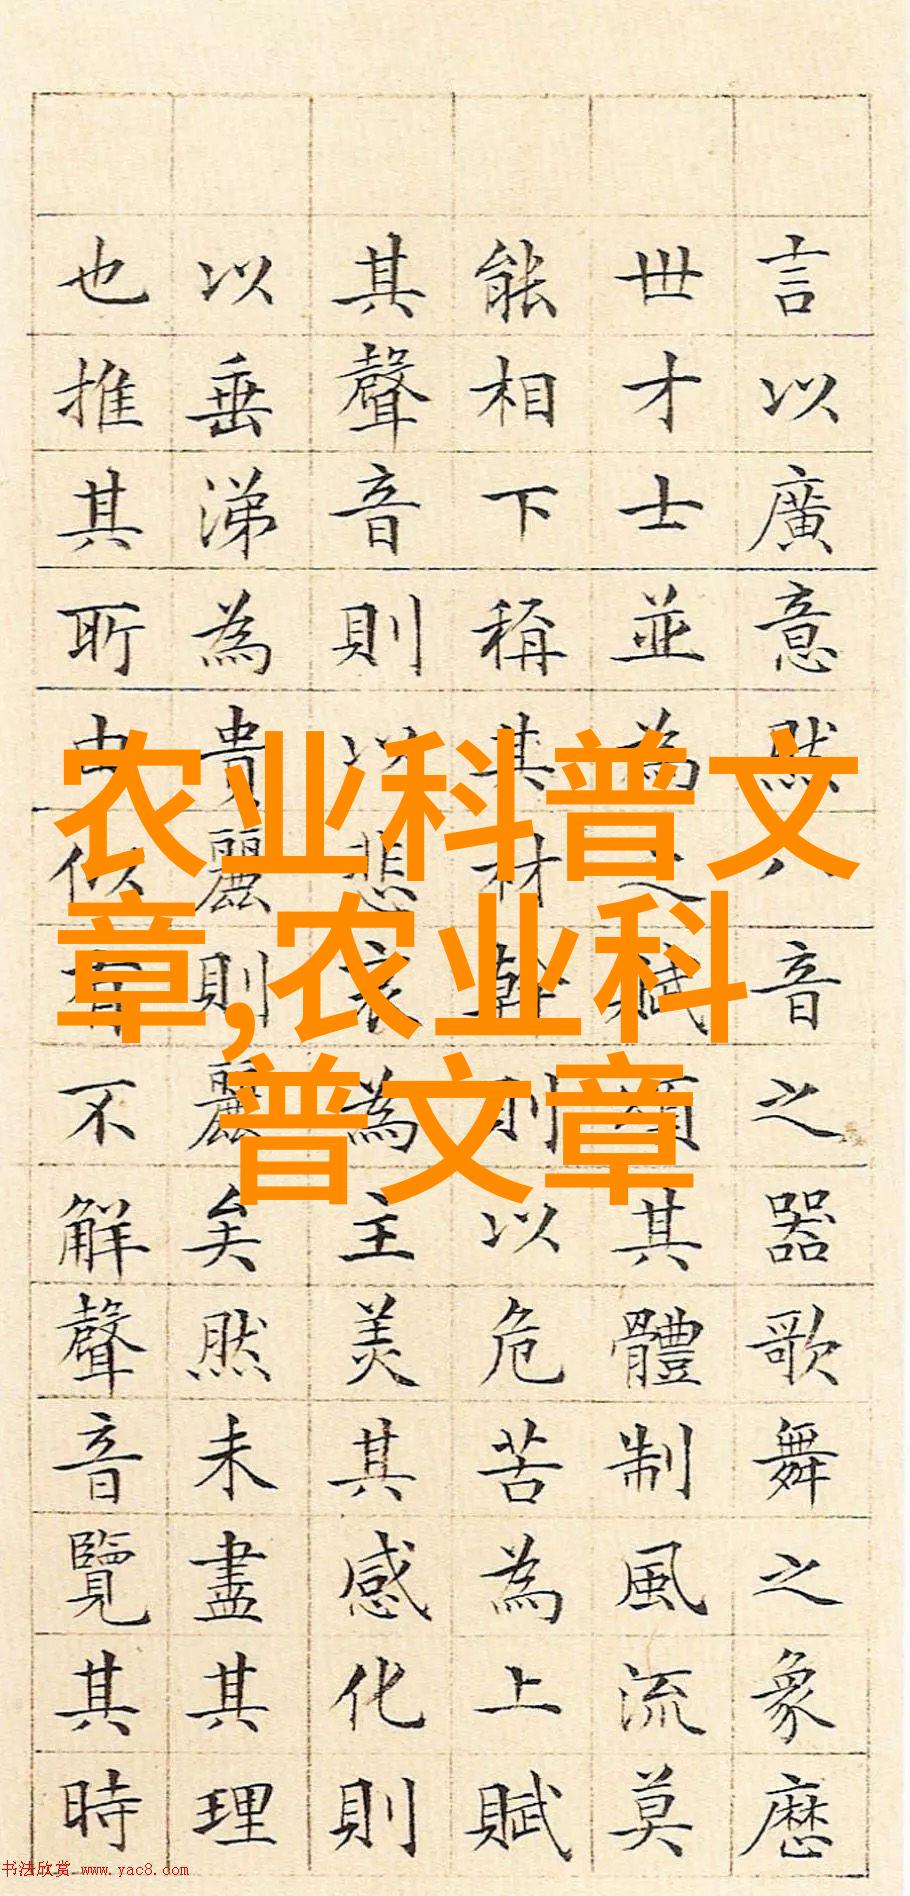 言以廣意然八音之器歌舞之象歷
世才士並為之賦頌其體制風流莫
能相下稱其材幹則以危苦為上賦
其聲音則以悲哀為主美其感化則
以垂涕為貴麗則麗矣然未盡其理
也推其所由似有不解聲音覽其時
农业科普文
章,农业科
普文章
书法欣赏 www.yac8.com